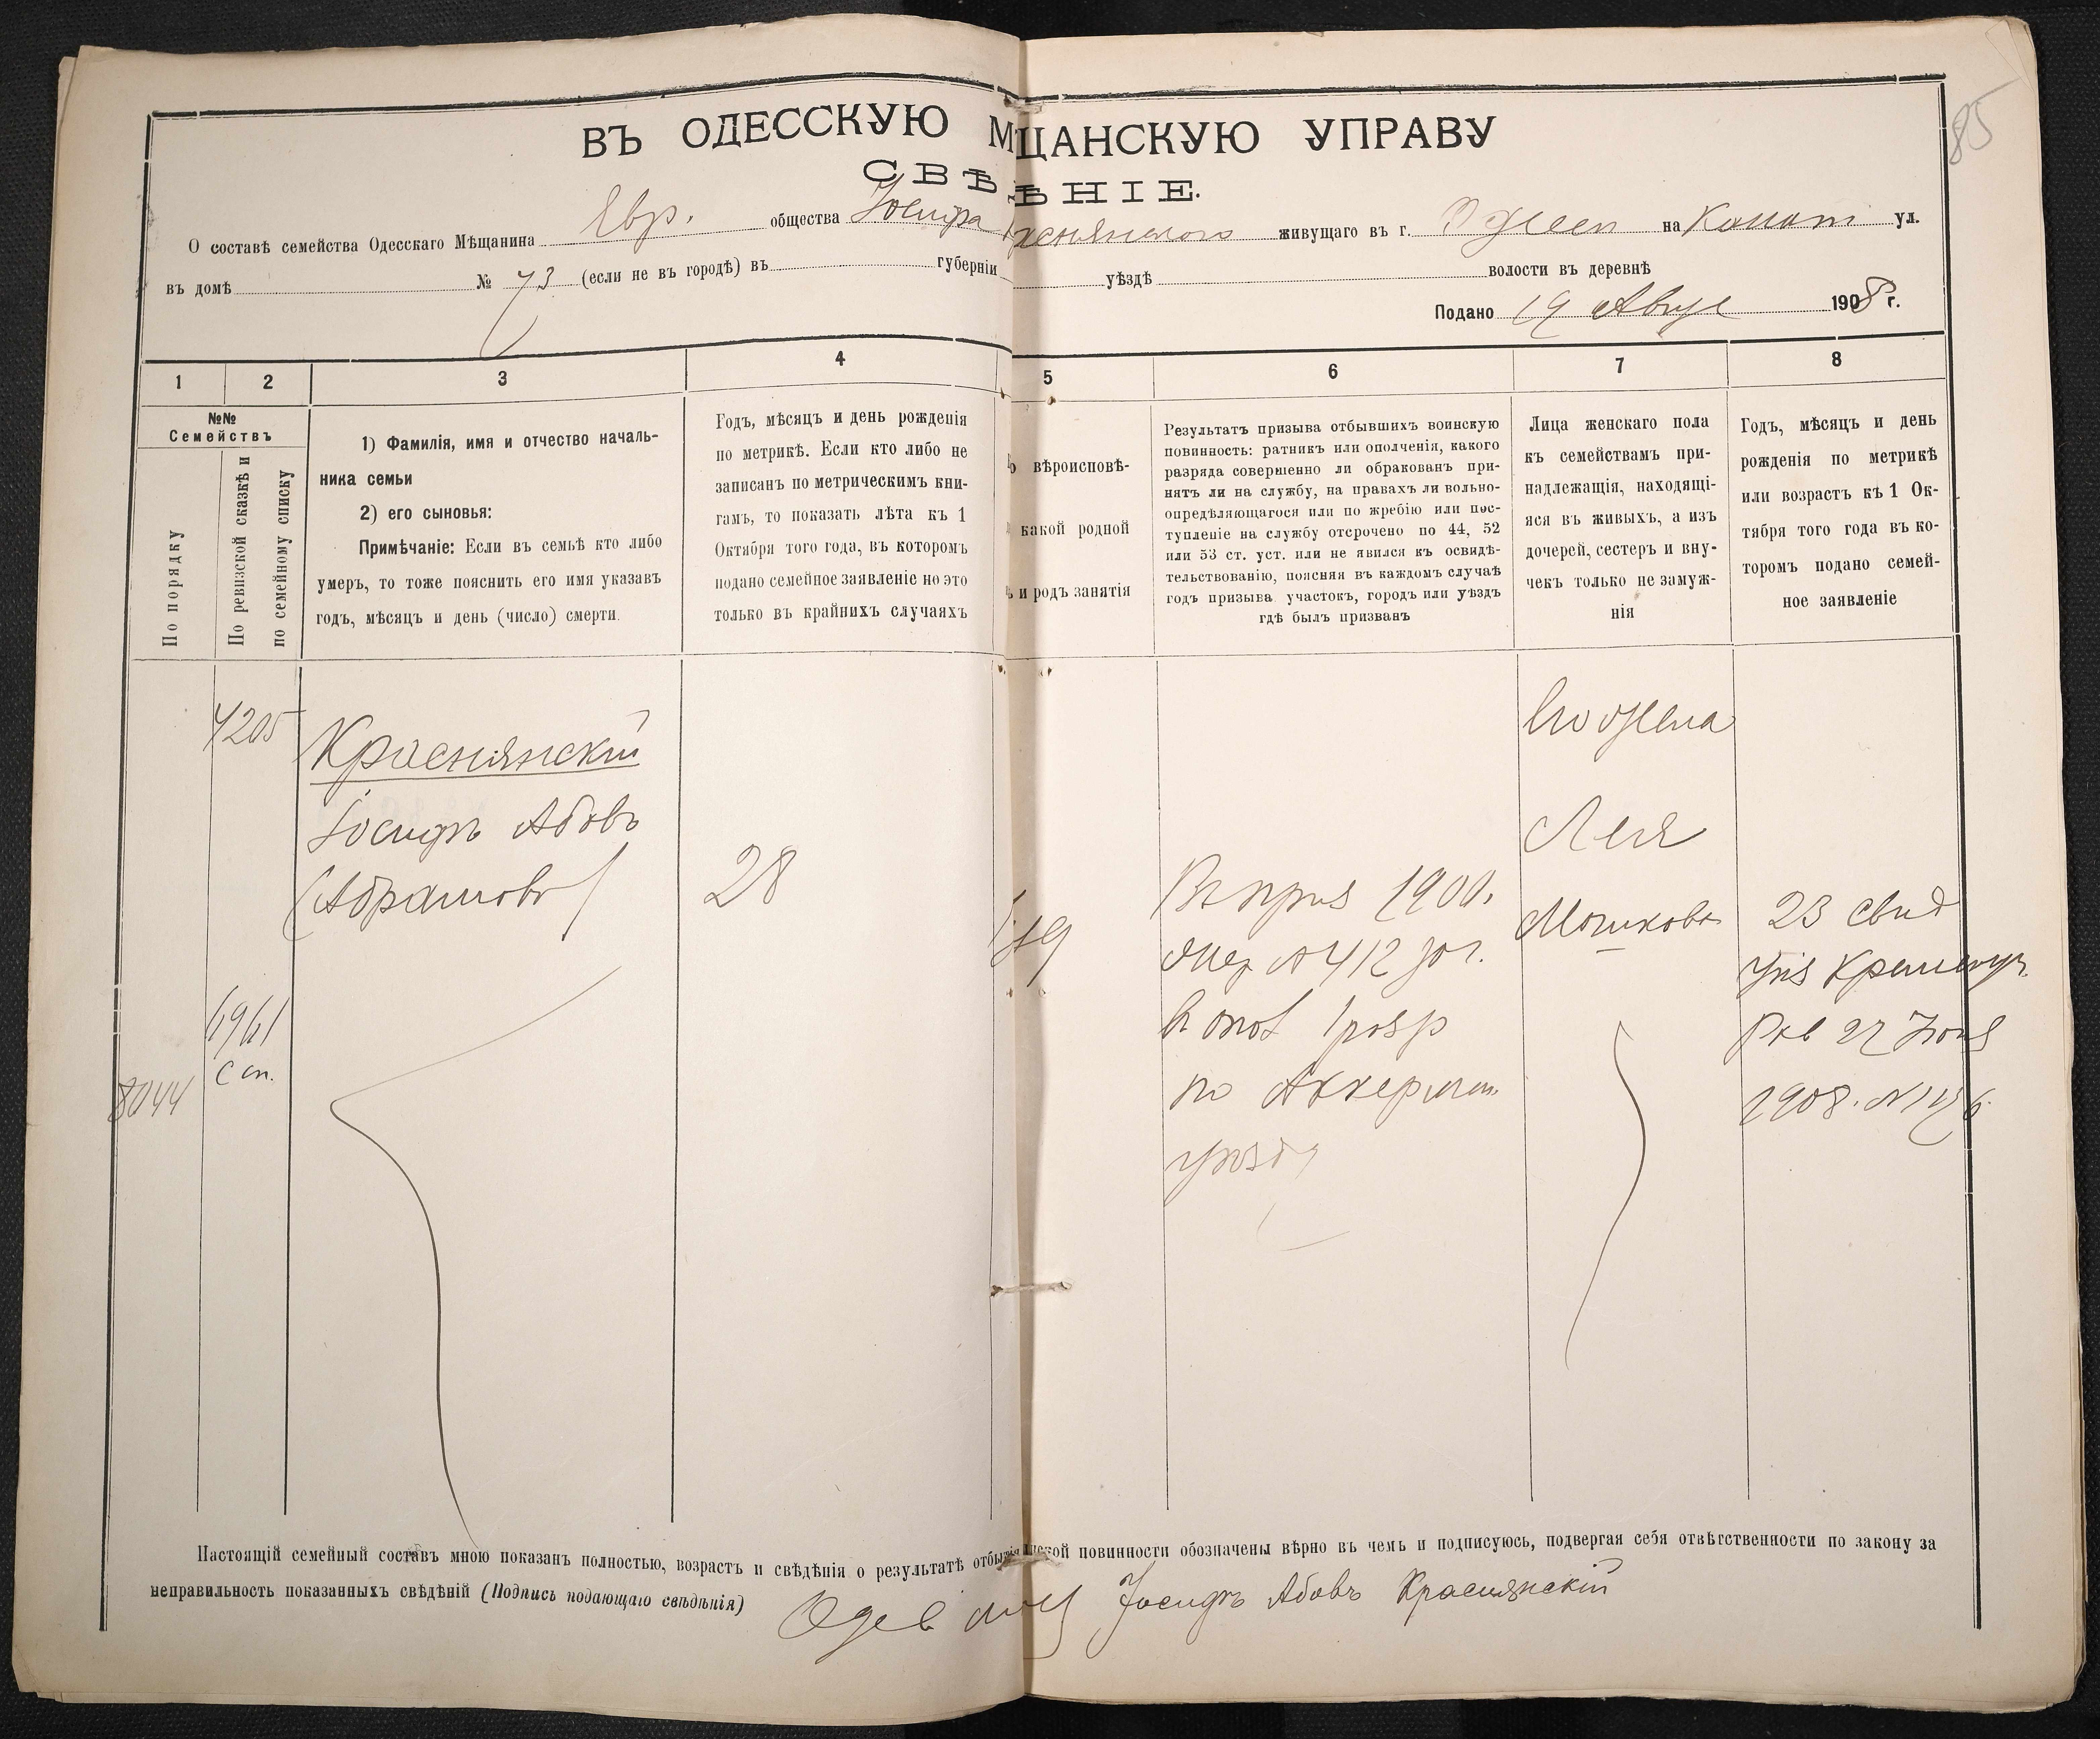 85
ВЪ ОДЕССКУЮ М ЩАНСКУЮ УПРАВУ
СВѢ ѢНІЕ.
О составѣ семейства Одесскаго Мѣщанина Евр. общества Іосифа Краснянскаго живущаго въ г. Одессѣ на Канат ул.
въ домѣ № 73 (если не въ городѣ) въ губерніи уѣздѣ волости въ деревнѣ
Подано 19 Авгус 1908 г.
1 2 3 4 5 6 7 8
№№
Семействъ
По порядку
По ревизской сказкѣ и
по семейному списку
1) Фамилія, имя и отчество началь-
ника семьи
2) его сыновья:
Примѣчаніе: Если въ семьѣ кто либо
умеръ, то тоже пояснить его имя указавъ
годъ, мѣсяцъ и день (число) смерти.
Годъ, мѣсяцъ и день рожденія
по метрикѣ. Если кто либо не
записанъ по метрическимъ кни-
гамъ, то показать лѣта къ 1
Октября того года, въ которомъ
подано семейное заявленіе но это
только въ крайнихъ случаяхъ
вѣроисповѣ-
какой родной
и родъ занятія
Результатъ призыва отбывшихъ воинскую
повинность: ратникъ или ополченія, какого
разряда совершенно ли обракованъ при-
нятъ ли на службу, на правахъ ли вольно-
опредѣляющагося или по жребію или пос-
тупленіе на службу отсрочено по 44, 52
или 53 ст. уст. или не явился къ освидѣ-
тельствованію, поясняя въ каждомъ случаѣ
годъ призыва участокъ, городъ или уѣздъ
гдѣ былъ призванъ
Лица женскаго пола
къ семействамъ при-
надлежащія, находящі-
яся въ живыхъ, а изъ
дочерей, сестеръ и вну-
чекъ только не замуж-
нія
Годъ, мѣсяцъ и день
рожденія по метрикѣ
или возрастъ къ 1 Ок-
тября того года въ ко-
торомъ подано семей-
ное заявленіе
4205
Краснянскій
Іосифъ Абовъ
(Абрамовъ)
28
6961
с сп.
8044
Іуд
Въ приз 1901.
жер № 412 зач.
в опол 1 разр
по Аккерман.
уѣзду
Его жена
Лея
Мошкова
23 Свид
Кременчуг.
Рав 27 Іюня
1908. №
Настоящій семейный составъ мною показанъ полностью, возрастъ и свѣдѣнія о результатѣ отбытія инской повинности обозначены вѣрно въ чемъ и подписуюсь, подвергая себя отвѣтственности по закону за
неправильность показанныхъ свѣдѣній (Подпись подающаго свѣдѣнія) Одес мѣщ Іосифъ Абовъ Краснянскій